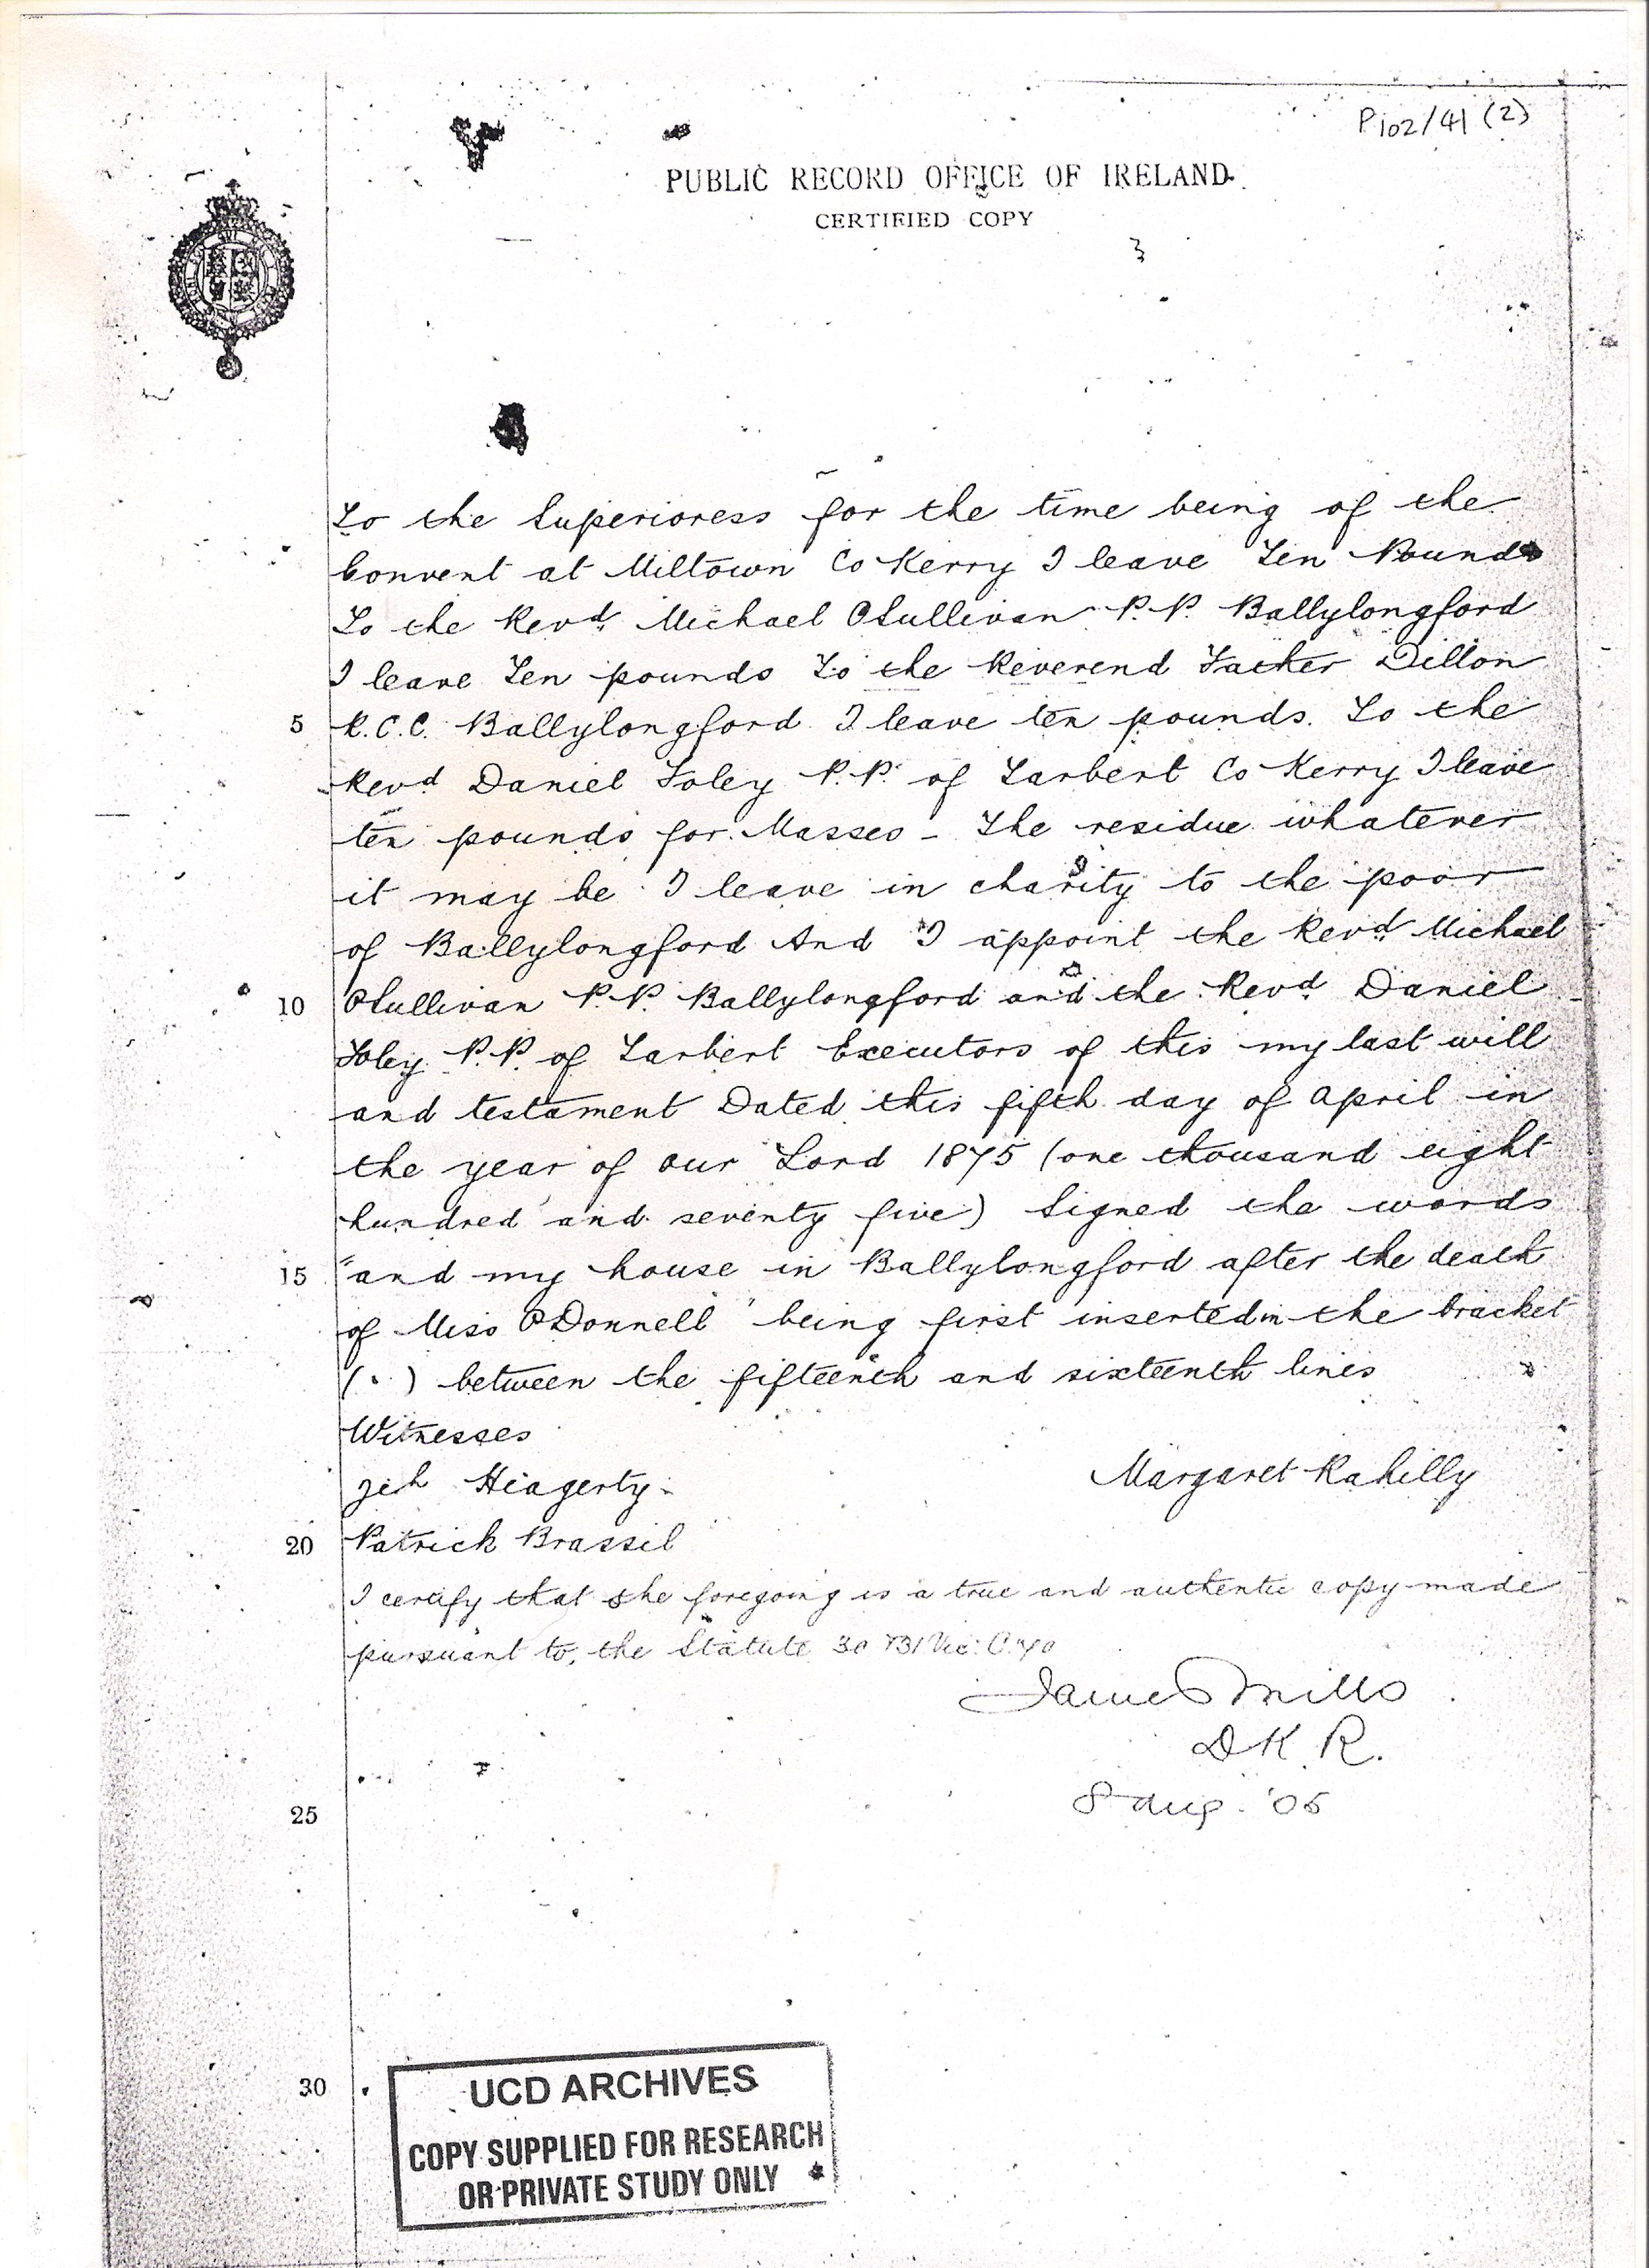 P102/41 (2)
PUBLIC RECORD OFFICE OF IRELAND.
CERTIFIED COPY
To the Superioress for the time being of the
Convent at Miltown Co Kerry I leave Ten Pounds
To the Revd. Michael OSullivan P.P. Ballylongford
I leave Ten pounds To the Reverend Father Dillon
5 R.C.C. Ballylongford I leave ten pounds. To the
Revd Daniel Foley P.P. of Tarbert Co Kerry I leave
ten pounds for Masses - The residue whatever
it may be I leave in charity to the poor
of Ballylongford And I appoint the Revd. Michael
10 OSullivan P.P. Ballylongford and the Revd. Daniel
Foley P.P. of Tarbert Executors of this my last will
and testament Dated this fifth day of April in
the year of our Lord 1875 (one thousand eight
hundred and seventy five) Signed the words
15 "and my house in Ballylongford after the death
of Miss ODonnell" being first inserted in the bracket
( . ) between the fifteenth and sixteenth lines
Witnesses
Heagerty. Margaret Rahilly
20 Patrick Brassil
I certify that the foregoing is a true and authentic copy made
pursuant to, the Statute 30 & 31 Vic: C. 70
James Mills
D K R.
8 Aug. '05
25
30
UCD ARCHIVES
COPY SUPPLIED FOR RESEARCH
OR PRIVATE STUDY ONLY